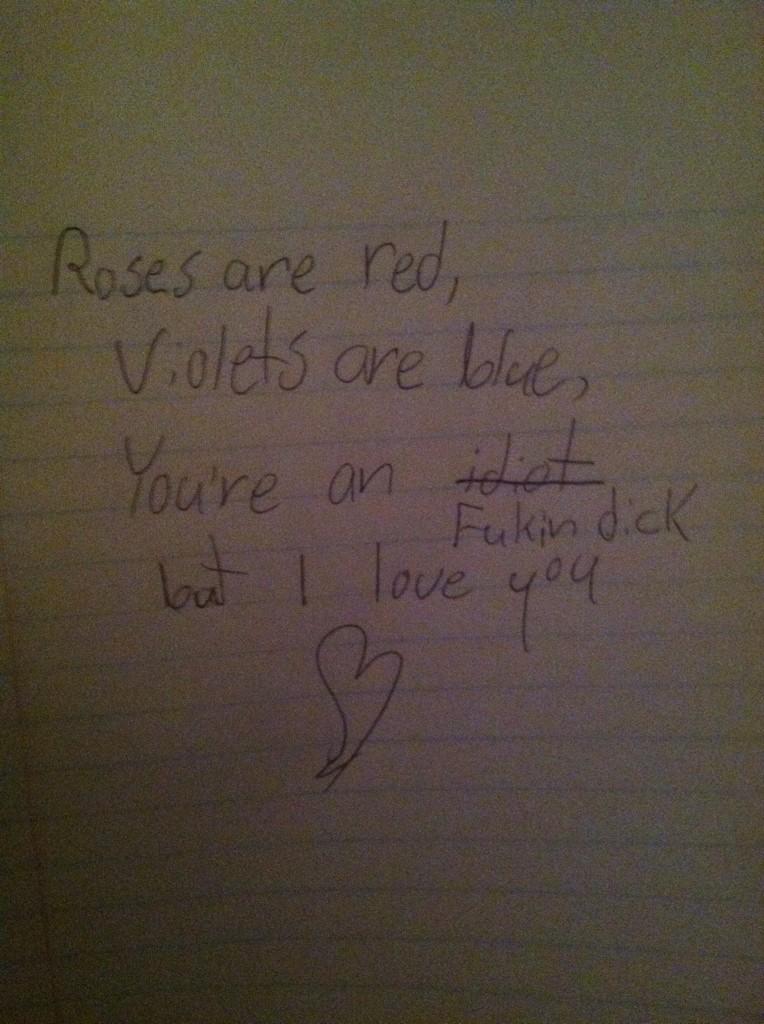 Roses are red,
Violets are blue,
You're an idiot
Fukin dick
but I love you